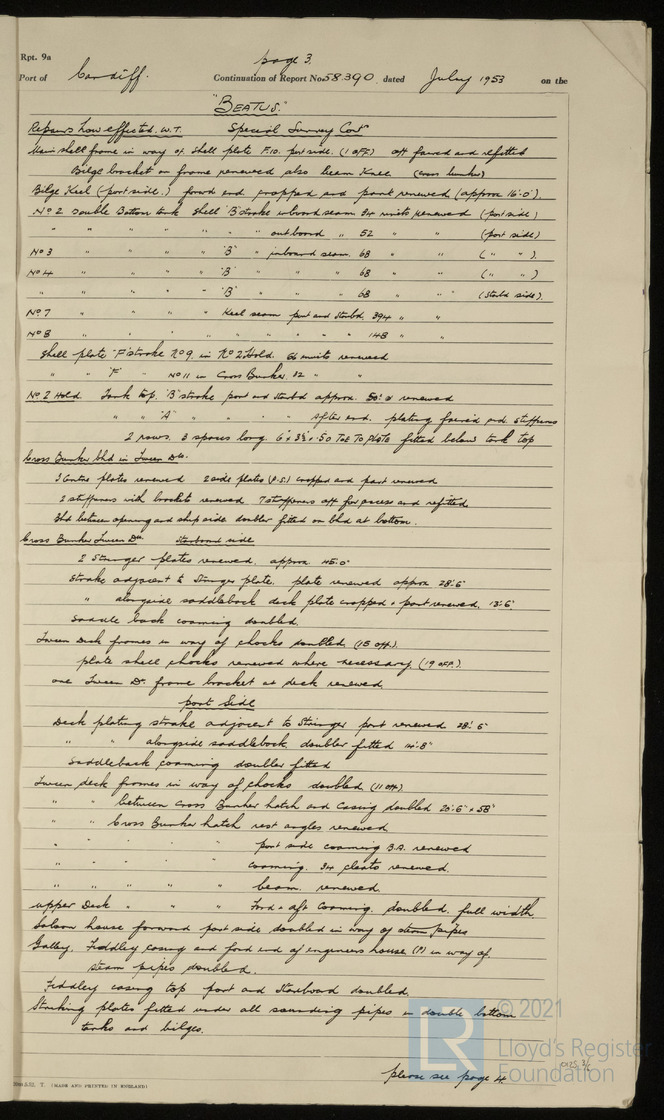 Rpt. 9a
page 3.
Port of Cardiff. Continuation of Report No. 58390 dated July 1953 on the
"BEATUS."
Repairs how effected. W.T. Special Survey Cont
Main shell frame in way of shell plate F.10. port side. (1 OFF) off faired and refitted
Bilge bracket on frame renewed also beam knee (cross bunker)
Bilge Keel (port side.) forwd end cropped and part renewed (approx 16'-0").
No 2 Double Bottom tank shell 'B' strake inboard seam 94 rivets renewed (port side)
" " " " " " " outboard " 52 " " (port side)
No 3 " " " " 'B' " inboard seam 68 " " ( " " ).
No 4 " " " " 'B' " " " 68 " " ( " " )
" " " " " 'B' " " " 68 " " (Starbd side).
No 7 " " " " Keel seam port and Starbd. 394 " "
No 8 " " " " " " " " " 148 " "
Shell plate 'F' strake No 9. in No 2 Hold. 62 rivets renewed
" " 'F' " No 11 in Cross Bunker. 32 " "
No 2 Hold. Tank top. 'B' strake port and starbd approx. 50' renewed
" " 'A' " " " " After end. plating faired and stiffeners
2 rows. 3 spaces long. 6" x 3½" x .50 Toe To Plate fitted below tank top
Cross Bunker bhd in Tween Dks.
3 Centre plates renewed 2 side plates (P.S.) cropped and part renewed
2 stiffeners with brackets renewed. 7 stiffeners off for access and refitted
Bhd between opening and ship side doubler fitted on bhd at bottom.
Cross Bunker Tween Dks. Starboard side
2 Stringer plates renewed. approx. 45'-0"
Strake adjacent to Stringer plate. plate renewed approx 28'-6"
" alongside saddleback deck plate cropped & part renewed. 13'-6"
Saddle back coaming doubled.
Tween Deck frames in way of chocks doubled. (15 off.)
plate shell chocks renewed where necessary. (19 OFF.)
one Tween Dk. frame bracket at deck renewed.
port Side
Deck plating strake adjacent to Stringer part renewed 28'-6"
" " alongside saddleback. doubler fitted 14'-8"
Saddleback coaming doubler fitted
Tween deck frames in way of chocks doubled (11 off.)
" " between Cross Bunker hatch and Casing doubled 20'-6" x 58"
" " Cross Bunker hatch rest angles renewed
" " " " port side coaming B.A. renewed
" " " " coaming. 34 cleats renewed.
" " " " beam. renewed.
Upper Deck " " " Ford & aft Coaming. doubled. full width.
Saloon house forward port side doubled in way of steam pipes
Galley, Fiddley casing and ford end of engineers house (P) in way of.
steam pipes doubled.
Fiddley casing top port and Starboard doubled.
Striking plates fitted under all sounding pipes in double bottom
tanks and bilges.
please see page 4
(MADE AND PRINTED IN ENGLAND)
© 2021
LR
Lloyd's Register
Foundation